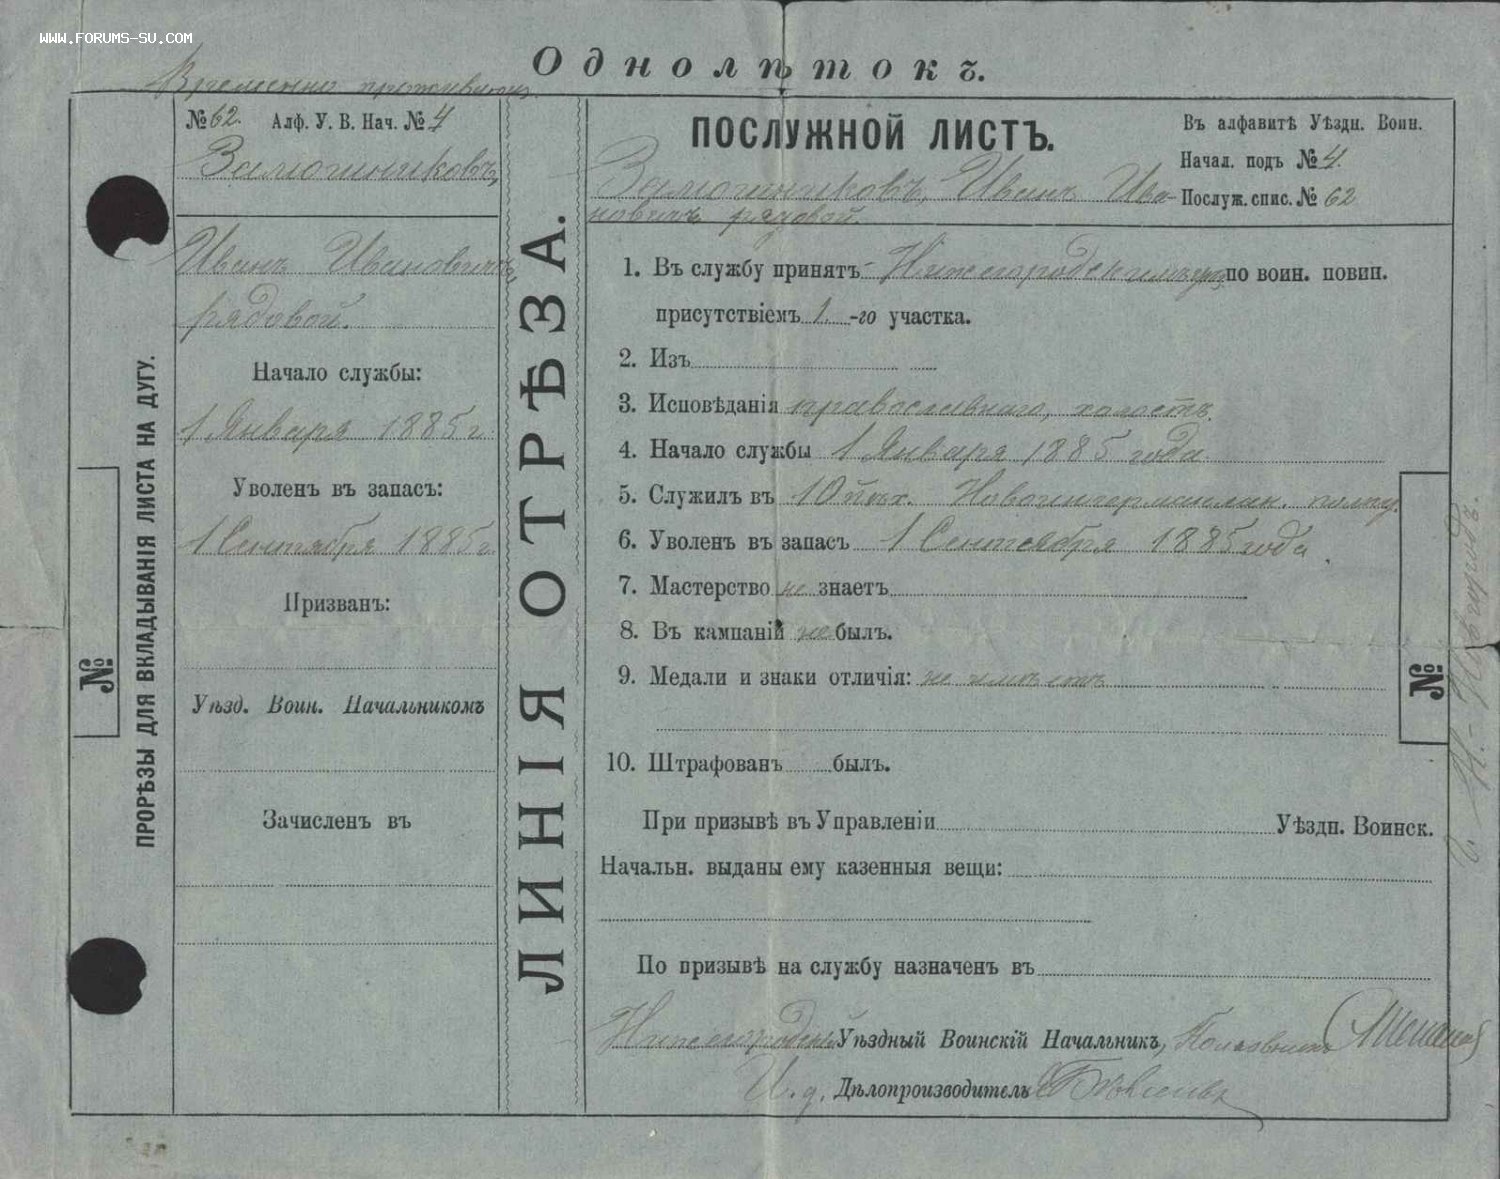 WWW.FORUMS-SU.COM
Однолѣтокъ.
Временно проживающ.
№ 62. Алф. У. В. Нач. № 4
Иванъ Ивановичъ,
рядовой.
Начало службы:
1 Января 1885 г.
Уволенъ въ запасъ:
1 Сентября 1885 г.
Призванъ:
Уѣзд. Воин. Начальникомъ
Зачисленъ въ
№
ПРОРѢЗЫ ДЛЯ ВКЛАДЫВАНІЯ ЛИСТА НА ДУГУ.
ЛИНІЯ ОТРѢЗА.
ПОСЛУЖНОЙ ЛИСТЪ.
Въ алфавитѣ Уѣздн. Воин.
Начал. подъ № 4.
Послуж. спис. № 62
Иванъ Ива-
новичъ рядовой.
1. Въ службу принятъ Нижегородскимъ по воин. повин.
присутствіемъ 1 -го участка.
2. Изъ
3. Исповѣданія православнаго, холостъ.
4. Начало службы 1 Января 1885 года
5. Служилъ въ 10 пѣх. Новоингерманлан. полку.
6. Уволенъ въ запасъ 1 Сентября 1885 года
7. Мастерство не знаетъ
8. Въ кампаніи не былъ.
9. Медали и знаки отличія: не имѣетъ
10. Штрафованъ былъ.
При призывѣ въ Управленіи Уѣздн. Воинск.
Начальн. выданы ему казенныя вещи:
По призывѣ на службу назначенъ въ
Нижегородскій Уѣздный Воинскій Начальникъ, Полковникъ
И. д. Дѣлопроизводитель
№
г. Н.-Новгородъ.